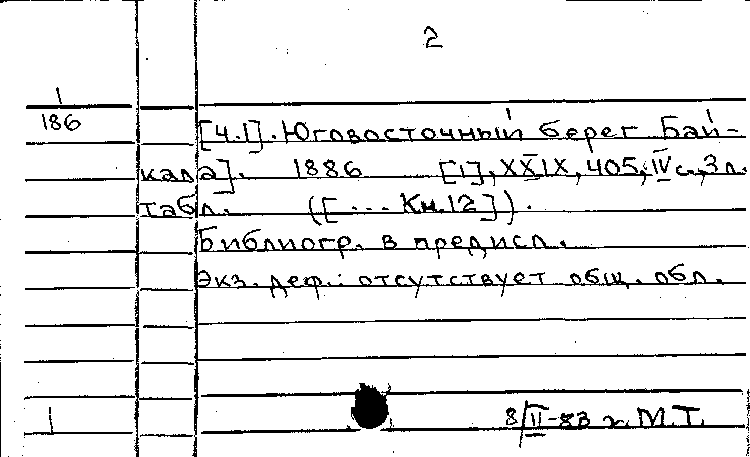 2
1
186
[Ч.I]. Юговосточный берег Бай-
кала]. 1886 [1], XXIX, 405, IV с., 3 л.
табл. ([... Кн.12]).
Библиогр. в предисл.
Экз. деф.: отсутствует общ. обл.
8/II-83 г. М.Т.